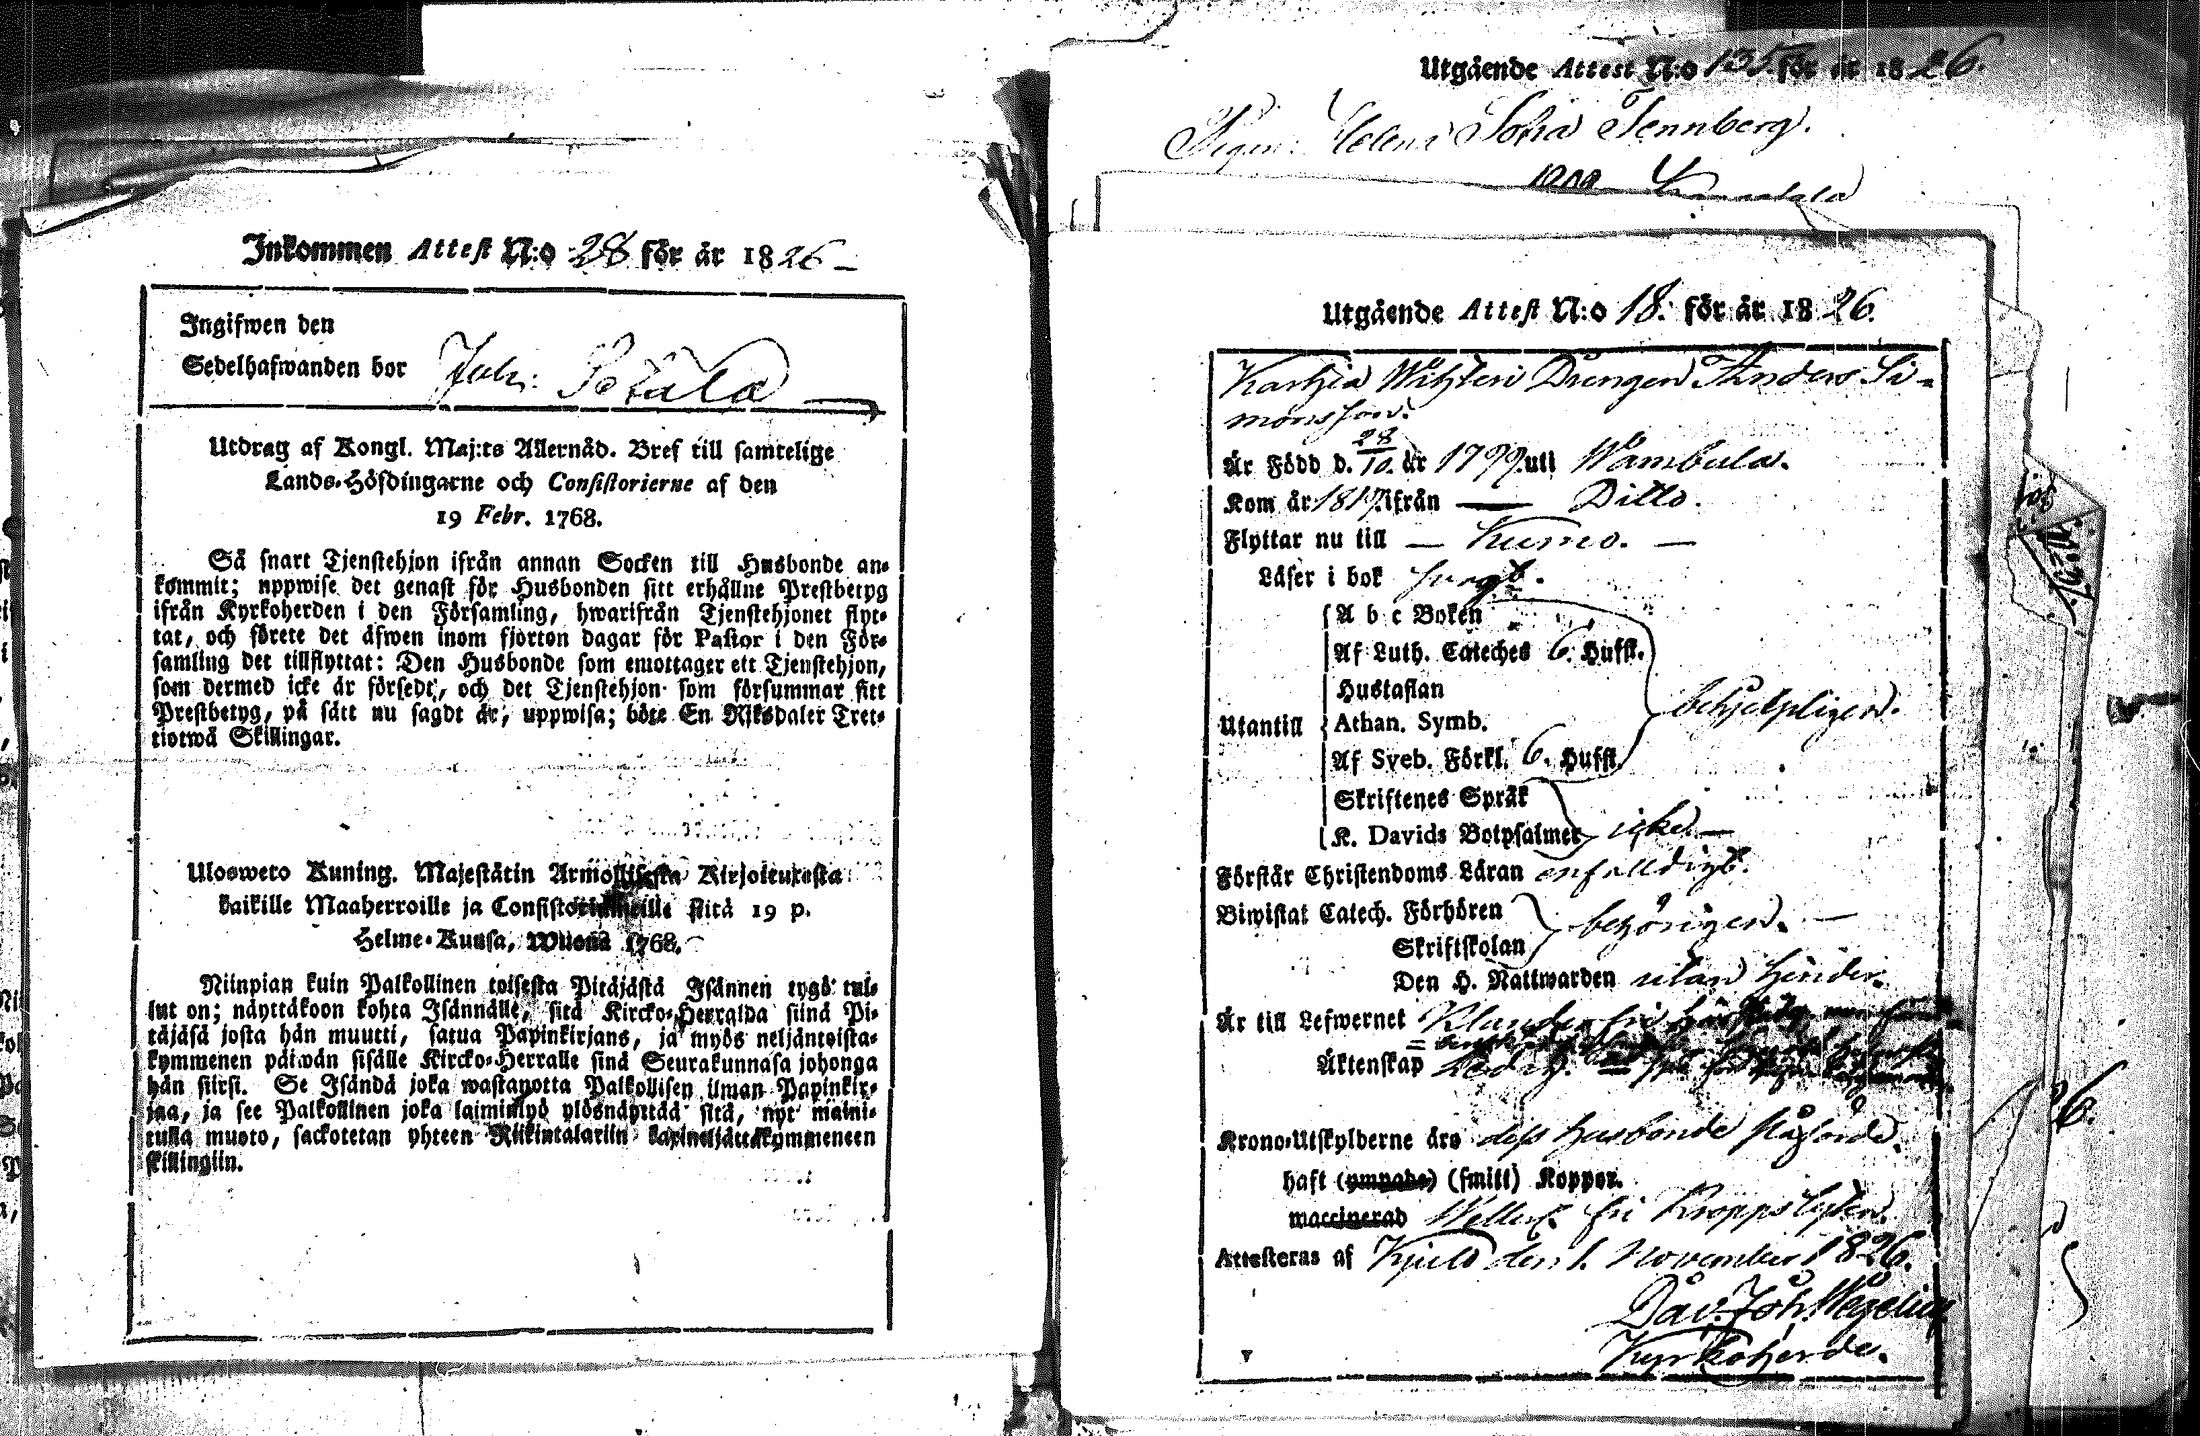 Inkommen Attest N:o 28 för år 1826
Ingifwen den
Sedelhafwanden bor Joh:
Utdrag af Kongl. Maj:ts Allernåd. Bref till samtelige
Lands-Höfdingarne och Consistorierne af den
19 Febr. 1768.
Så snart Tjenstehjon ifrån annan Socken till Husbonde an-
kommit; uppwise det genast för Husbonden sitt erhållne Prestbetyg
ifrån Kyrkoherden i den Församling, hwarifrån Tjenstehjonet flyt-
tat, och förete det äfwen inom fjorton dagar för Pastor i den För-
samling det tillflyttat: Den Husbonde som emottager ett Tjenstehjon,
som dermed icke är försedt, och det Tjenstehjon som försummar sitt
Prestbetyg, på sätt nu sagdt är, uppwisa; böte En Riksdaler Tret-
tiotwå Skillingar.
Ulosweto Kuning. Majestätin Armollisesta Kirjoituxesta
kaikille Maaherroille ja Consistoriumeille siitä 19 p.
Helme-Kuusa, Wuona 1768.
Niinpian kuin Palkollinen toisesta Pitäjästä Isännen tygö tul-
lut on; näyttäköön kohta Isännälle, sitä Kircko-Herralda siinä Pi-
täjäsä josta hän muutti, saatua Papinkirjans, ja myös neljäntoista-
kymmenen päiwän sisälle Kircko-Herralle sinä Seurakunnasa johonga
hän siirsi. Se Isändä joka wastanotta Palkollisen ilman Papinkir-
jaa, ja see Palkollinen joka laiminlyö ylösnäyttää sitä, nyt maini-
tulla muoto, sackotetan yhteen Riikintalariin kapineljättäkymmeneen
skillingiin.
Utgående Attest N:o 135 för år 1826.
Pigan: Helena Sofia Tennberg.
Utgående Attest N:o 18. för år 1826.
Drängen Anders Si-
monsson.
Är Född d. 28/10. år 1799. uti Wambula.
Kom år 1817. ifrån — Ditto.
Flyttar nu till — Kumo. —
Läser i bok svagt.
A b c Boken
Af Luth. Cateches 6. Hufst.
Hustaflan
Utantill Athan. Symb. behjelpligen.
Af Sveb. Förkl. 6. Hufst.
Skriftenes Språk
K. Davids Botpsalmer icke. —
Förstår Christendoms Läran enfalldigt.
Biwistat Catech. Förhören
Skriftskolan behörigen. —
Den H. Nattwarden utan hinder.
Är till Lefwernet
Äktenskap ledig.
Krono-Utskylderne äro dess husbonde påförde.
haft (ympade) (smitt) Koppor.
waccinerad fri Kroppslyten.
Attesteras af Kjulo den 1. November 1826.
Dav. Joh. Wegelius
Kyrkoherde.